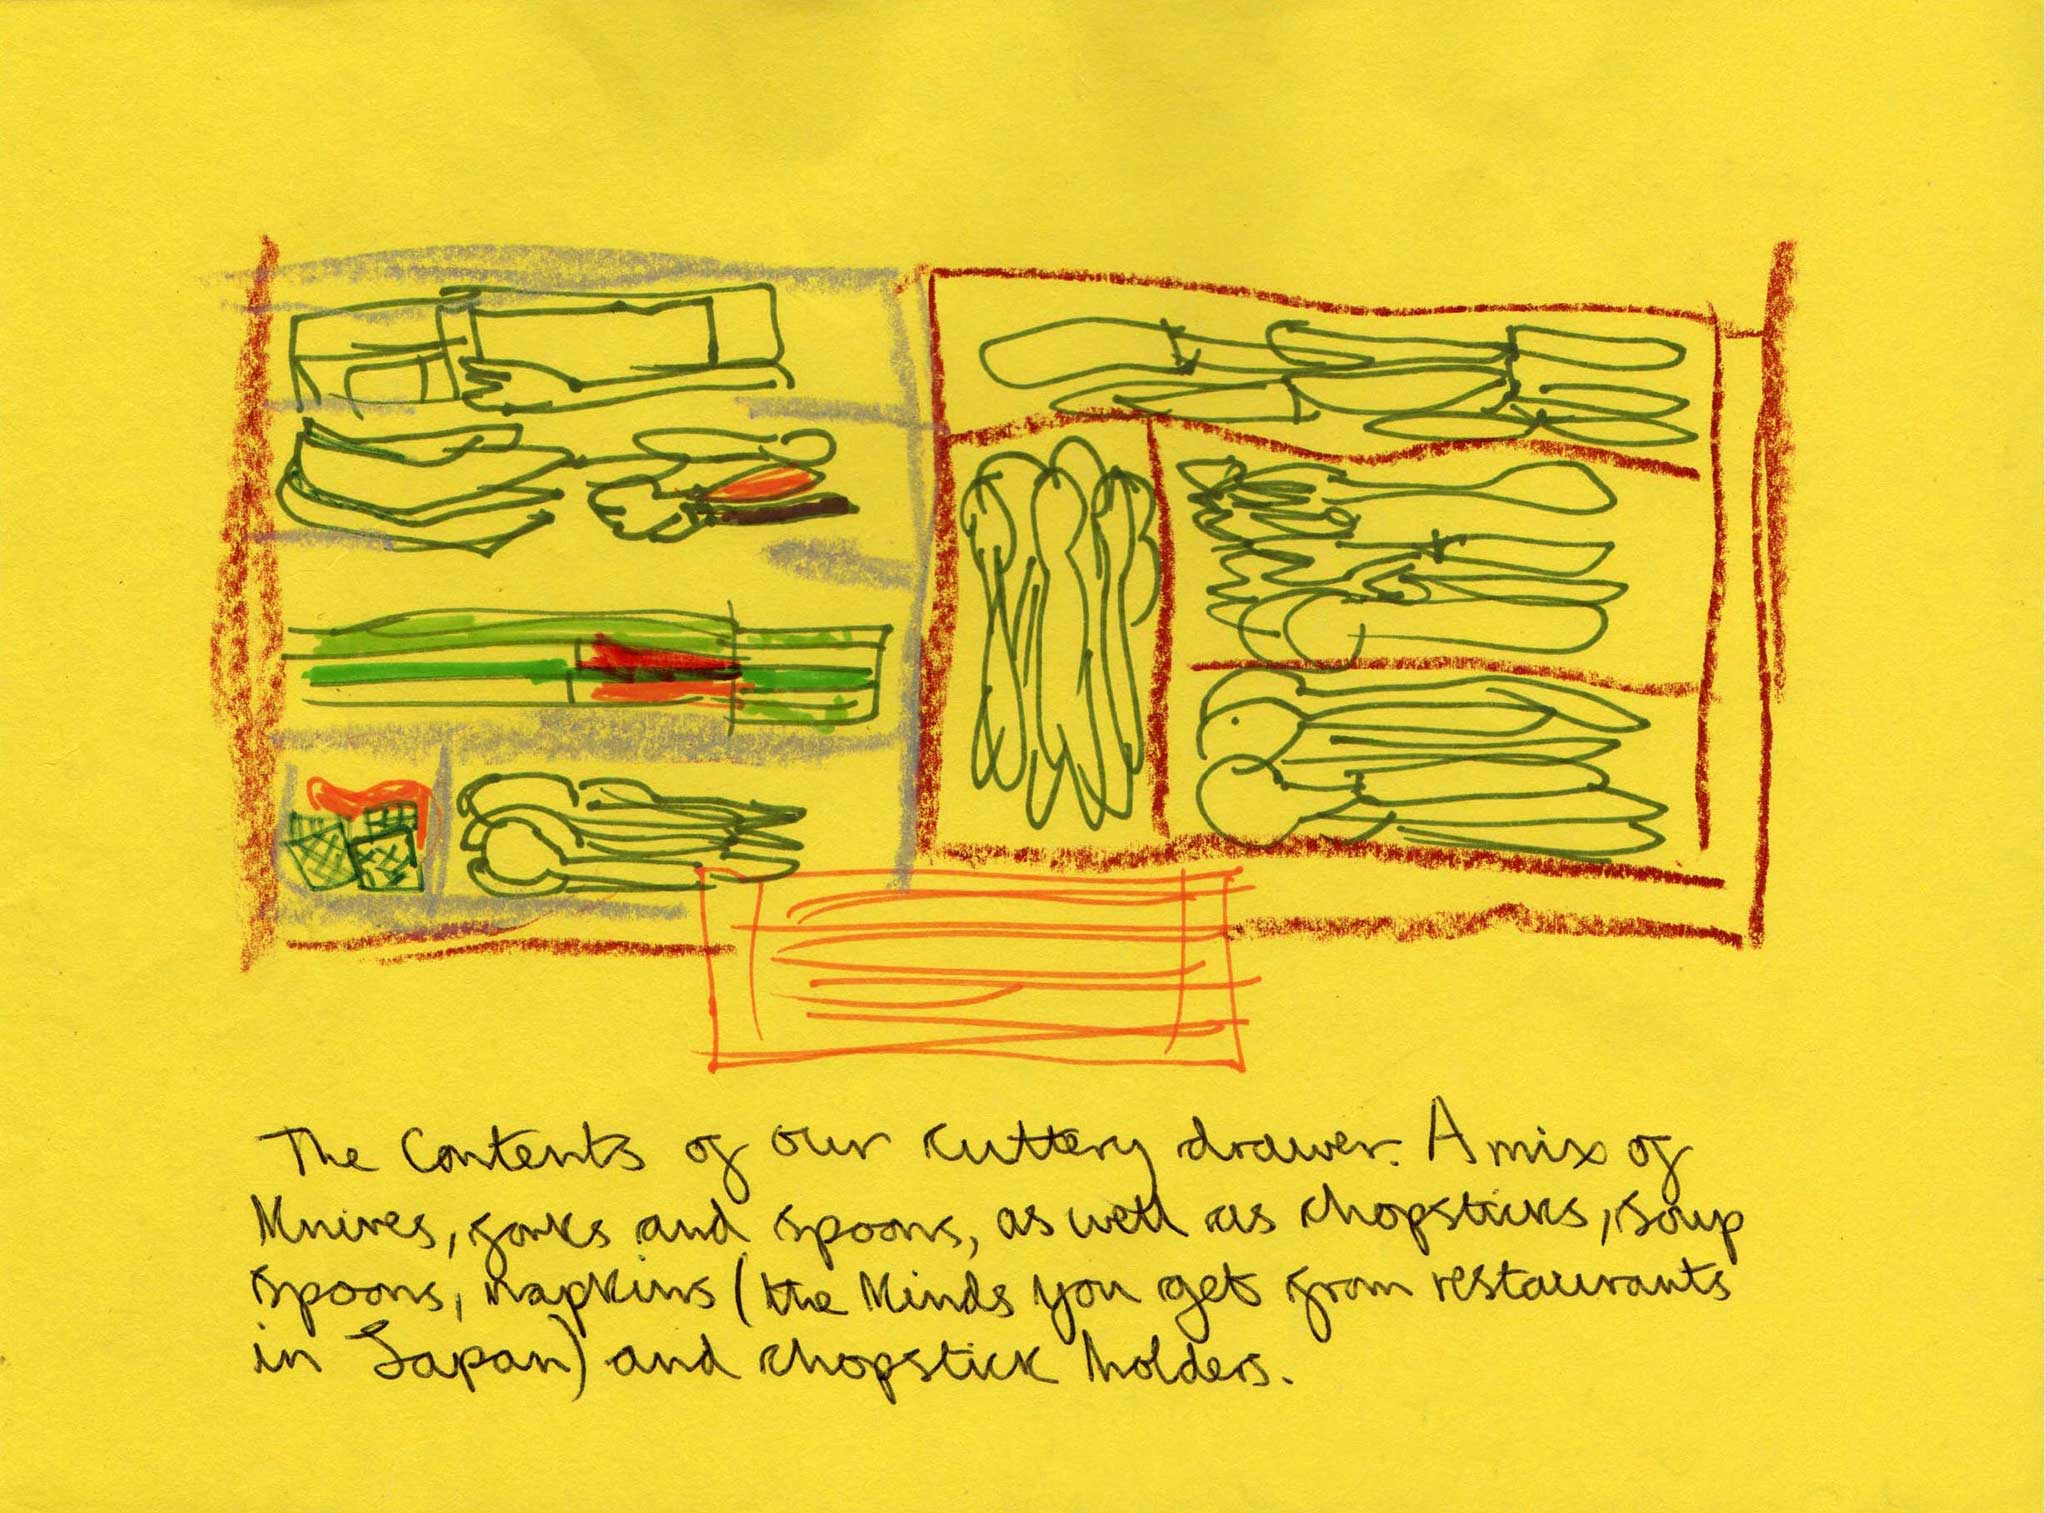 The Contents of our cuttery drawer. A mix of
knives, forks and spoons, as well as chopsticks, soup
spoons, napkins (the kinds you get from restaurants
in Japan) and chopstick holders.